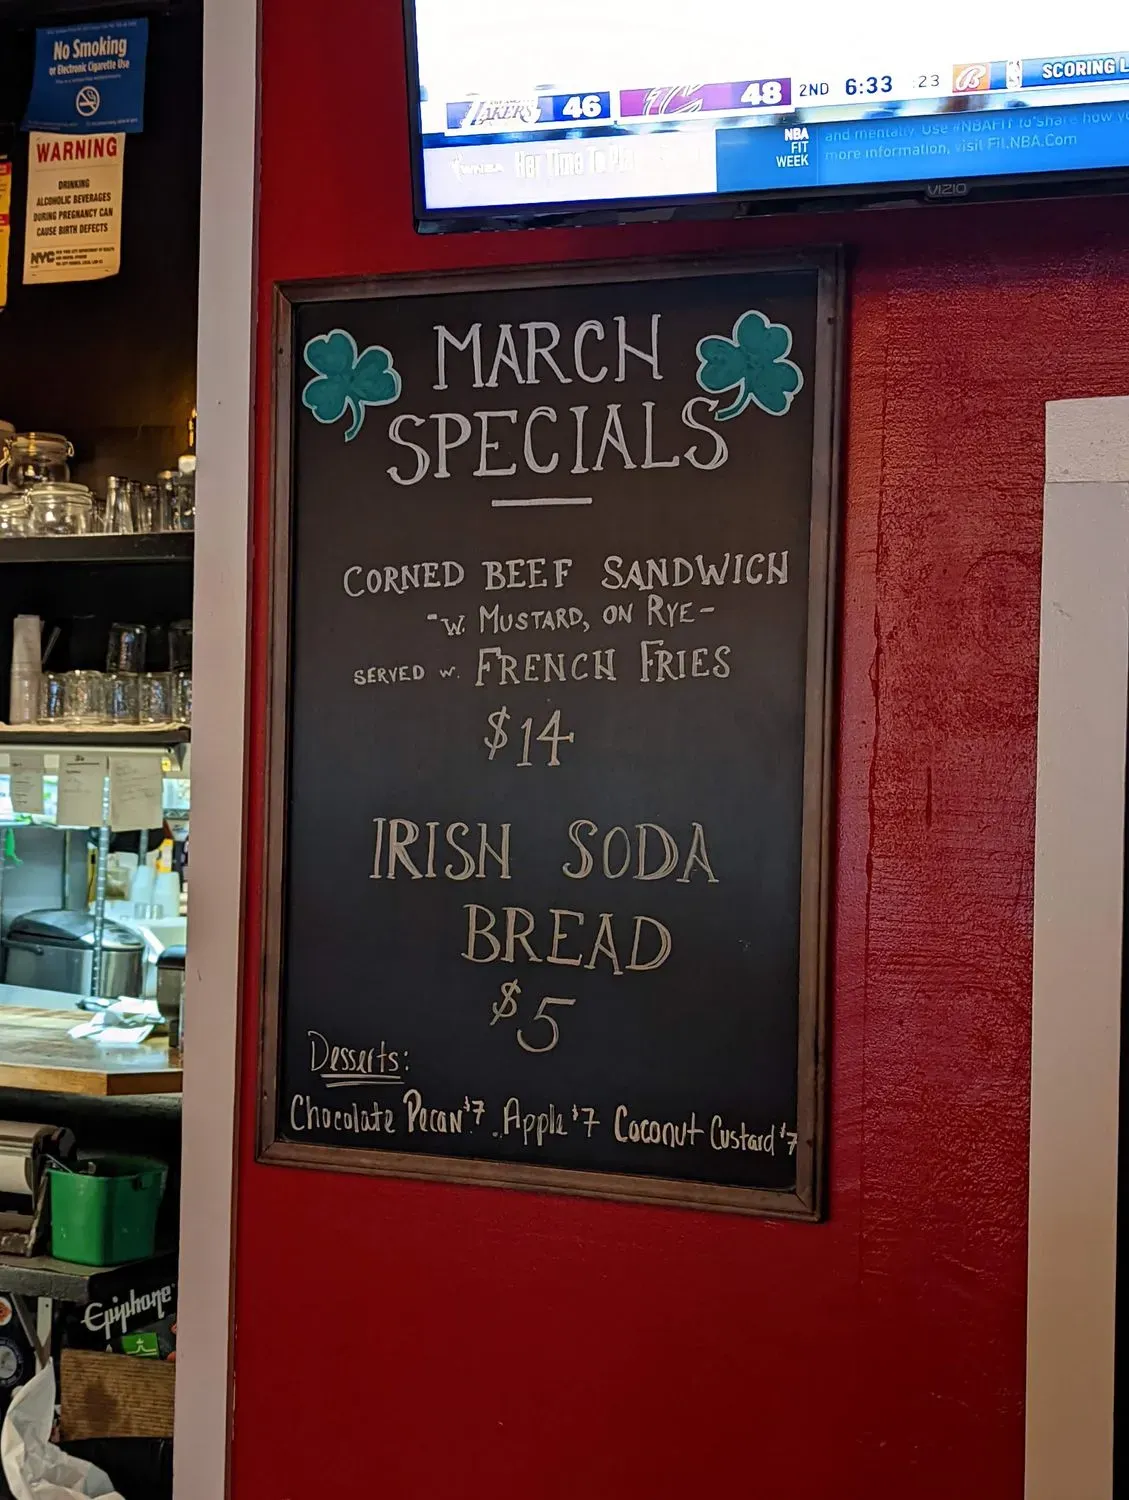 No Smoking
or Electronic Cigarette Use
WARNING
DRINKING
ALCOHOLIC BEVERAGES
DURING PREGNANCY CAN
CAUSE BIRTH DEFECTS
NYC
LAKERS 46 C 48 2ND 6:33 :23 SCORING L
WNBA Her Time To
NBA
FIT
WEEK
and mentally. Use #NBAFIT to share how yo
more information, visit Fit.NBA.Com
VIZIO
MARCH
SPECIALS
CORNED BEEF SANDWICH
-W. MUSTARD, ON RYE-
SERVED W. FRENCH FRIES
$14
IRISH SODA
BREAD
$5
Desserts:
Chocolate Pecan $7 Apple $7 Coconut Custard $7
Epiphone